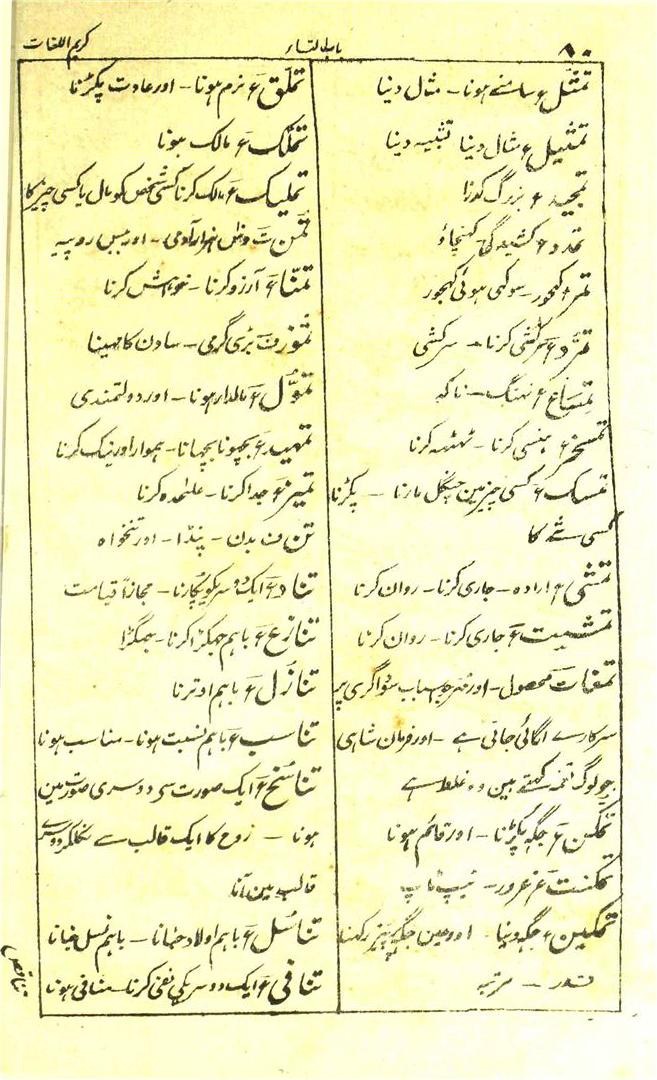 ۸۰
باب التاء
کریم اللغات
تمثّل ع سامنے ہونا ۔ مثال دینا
تمثیل ع مثال دینا تشبیہ دینا
تمجید ع بزرگ کرنا
تمدد ع کشیدگی کھنچاؤ
تمر ع کھجور ۔ سوکھی ہوئی کھجور
تمرّد ع سرکشی کرنا ۔ سرکشی
تمساح ع نہنگ ۔ ناکہ
تمسخر ع ہنسی کرنا ۔ ٹھٹھہ کرنا
تمسک ع کسی چیز مین چنگل مارنا ۔ پکڑنا
کسی شے کا
تمشی ع ارادہ ۔ جاری کرنا ۔ روان کرنا
تمشیت ع جاری کرنا ۔ روان کرنا
تمغات محصول ۔ اور اسباب سوداگری پر
سرکار سے لگائی جاتی ہے ۔ اور فرمان شاہی
جو لوگ تمغہ کہتے ہین وہ غلط ہے
تمکن ع جگہ پکڑنا ۔ اور قائم ہونا
تمکنت ع غرور ۔ ٹیپ ٹاپ
تمکین ع جگہ دینا اور مین جگہ رکھنا
قدر ۔ مرتبہ
تملّق ع نرم ہونا ۔ اور عادت پکڑنا
تملّک ع مالک ہونا
تملیک ع مالک کرنا کسی شخص کو مال یا کسی چیز کا
تمن ت دس ہزار آدمی ۔ اور بیس روپیہ
تمنّا ع آرزو کرنا ۔ خواہش کرنا
تموز ف بڑی گرمی ۔ ساون کا مہینا
تموّل ع مالدار ہونا ۔ اور دولتمندی
تمہید ع بچھونا بچھانا ۔ ہموار اور نیک کرنا
تمیز ع جدا کرنا ۔ علٰحدہ کرنا
تن ف بدن ۔ پنڈا ۔ اور تنخواہ
تناد ع ایک دوسریکو پکارنا ۔ مجازاً قیامت
تنازع ع باہم جھگڑا کرنا ۔ جھگڑا
تنازل ع باہم اوترنا
تناسب ع باہم نسبت ہونا ۔ مناسب ہونا
تناسخ ع ایک صورت سے دوسری صورتمین
ہونا ۔ روح کا ایک قالب سے نکلکر دوسرے
قالب مین آنا
تناسل ع باہم اولاد جننا ۔ باہم نسل
تنافی ع ایک دوسریکی نفی کرنا ۔ منافی ہونا
تناقص